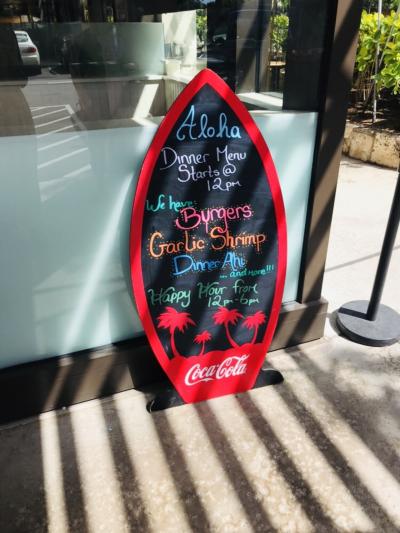 Aloha
Dinner Menu
Starts @
12pm
We have:
Burgers
Garlic Shrimp
Dinner Ahi
... and more!!!
Happy Hour from
12pm-6pm
Coca-Cola